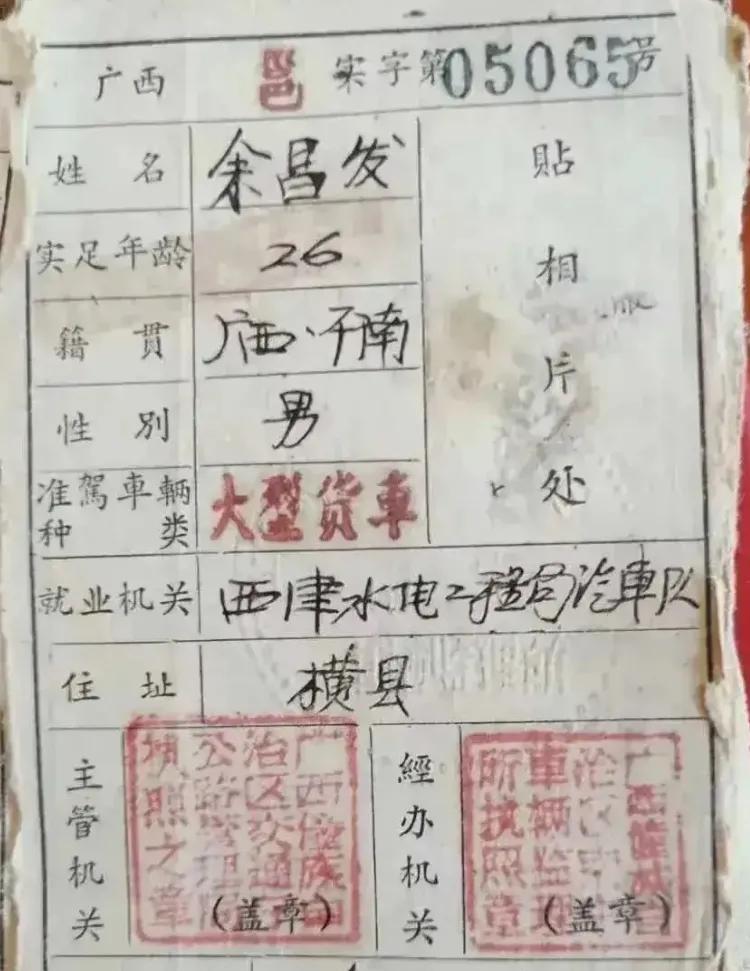 广西 邕 实字第05065号
姓名 余昌发
实足年龄 26
籍贯 广西、邘南
性别 男
准駕車辆种类 大型货車
貼相片处
就业机关 西津水电工程局汽車队
住址 横县
主管机关
(盖章)
經办机关
(盖章)
广西僮族自
治区交通
公路管理
执照之章
广西僮族自
治区
車辆监理
所执照章